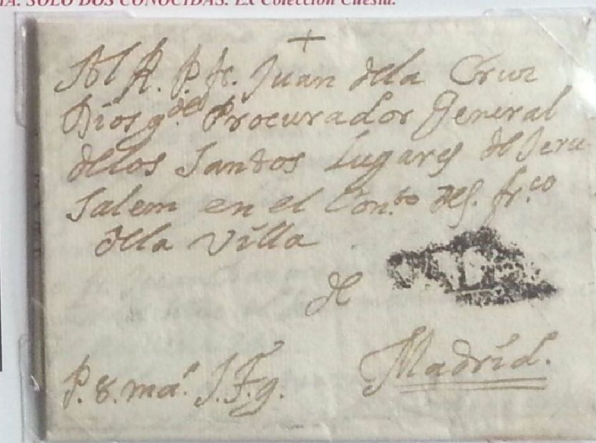 TA. SOLO DOS CONOCIDAS. Ex Colección Cuesta.
+
Al R. P. fr. Juan dela Cruz
Dios g.de Procurador General
delos Santos Lugares de Jeru
salem en el Con.to de S. fr.co
dela Villa
de
P. S. ma.
Madrid.